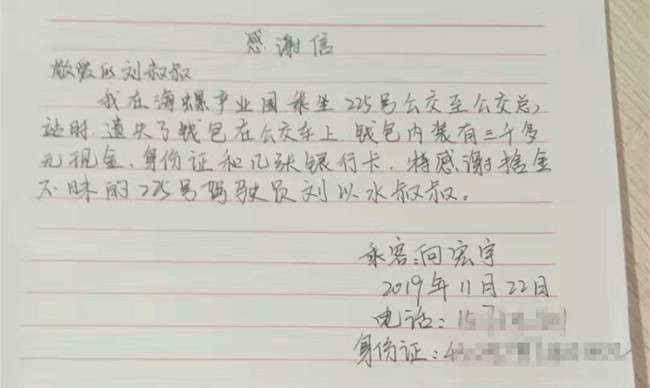 感谢信
敬爱的刘叔叔
我在海螺产业园乘坐225号公交至公交总
站时.遗失了钱包在公交车上.钱包内装有三千多
元现金、身份证和几张银行卡.特感谢捨金
不昧的225号驾驶员刘以水叔叔。
乘客:向宏宇
2019年11月22日
电话:15
身份证:4